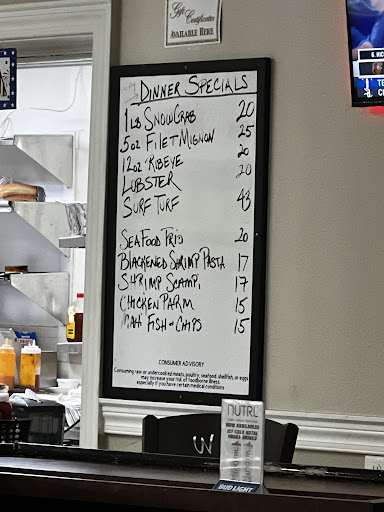 Gift
Certificates
AVAILABLE HERE
DINNER SPECIALS
1LB SNOWCRAB 20
5oz FILET MIGNON 25
12oz RIBEYE 20
LOBSTER 20
SURF TURF 43
SEAFOOD TRIO 20
BLACKENED SHRIMP PASTA 17
SHRIMP SCAMPI 17
CHICKEN PARM 15
FISH & CHIPS 15
CONSUMER ADVISORY
Consuming raw or undercooked meats, poultry, seafood, shellfish, or eggs
may increase your risk of foodborne illness,
especially if you have certain medical conditions
NÜTRL
NOW AVAILABLE
BUD LIGHT